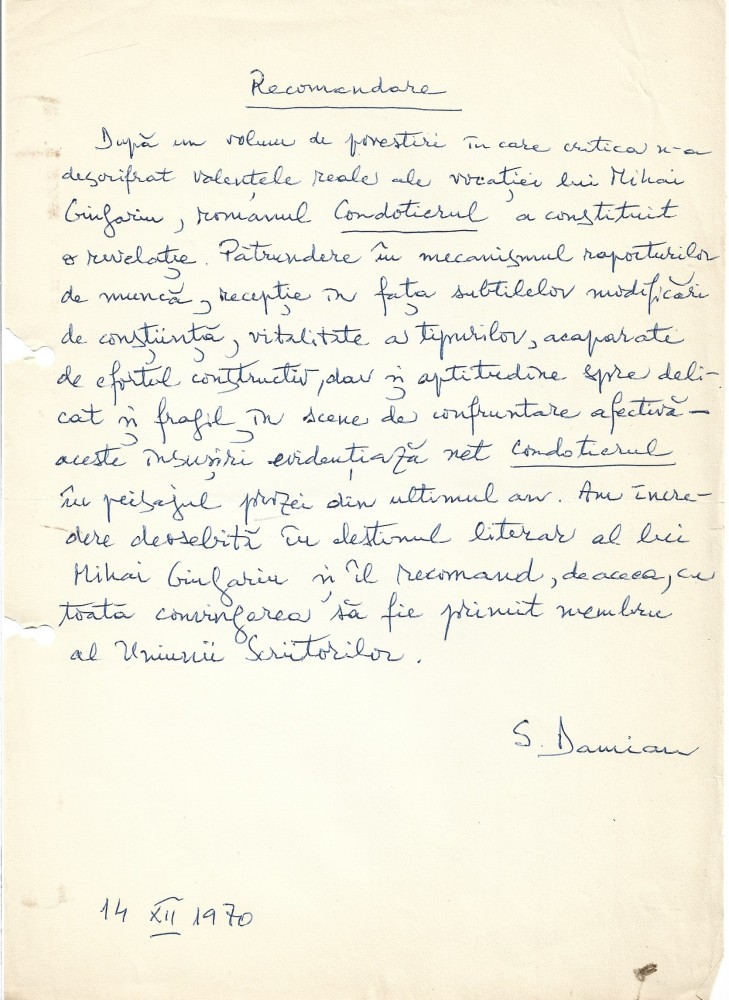 Recomandare
După un volum de povestiri în care critica n-a
descifrat valențele reale ale vocației lui Mihai
Giugariu, romanul Condotierul a constituit
o revelație. Pătrundere în mecanismul raporturilor
de muncă, recepție în fața subtilelor modificări
de conștiință, vitalitate a tipurilor, acaparate
de efortul constructiv, dar și aptitudine spre deli-
cat și fragil în scene de confruntare afectivă –
aceste însușiri evidențiază net Condotierul
în peisajul prozei din ultimul an. Am încre-
dere deosebită în destinul literar al lui
Mihai Giugariu și îl recomand, deaceea, cu
toată convingerea să fie primit membru
al Uniunii Scriitorilor.
S. Damian
14 XII 1970